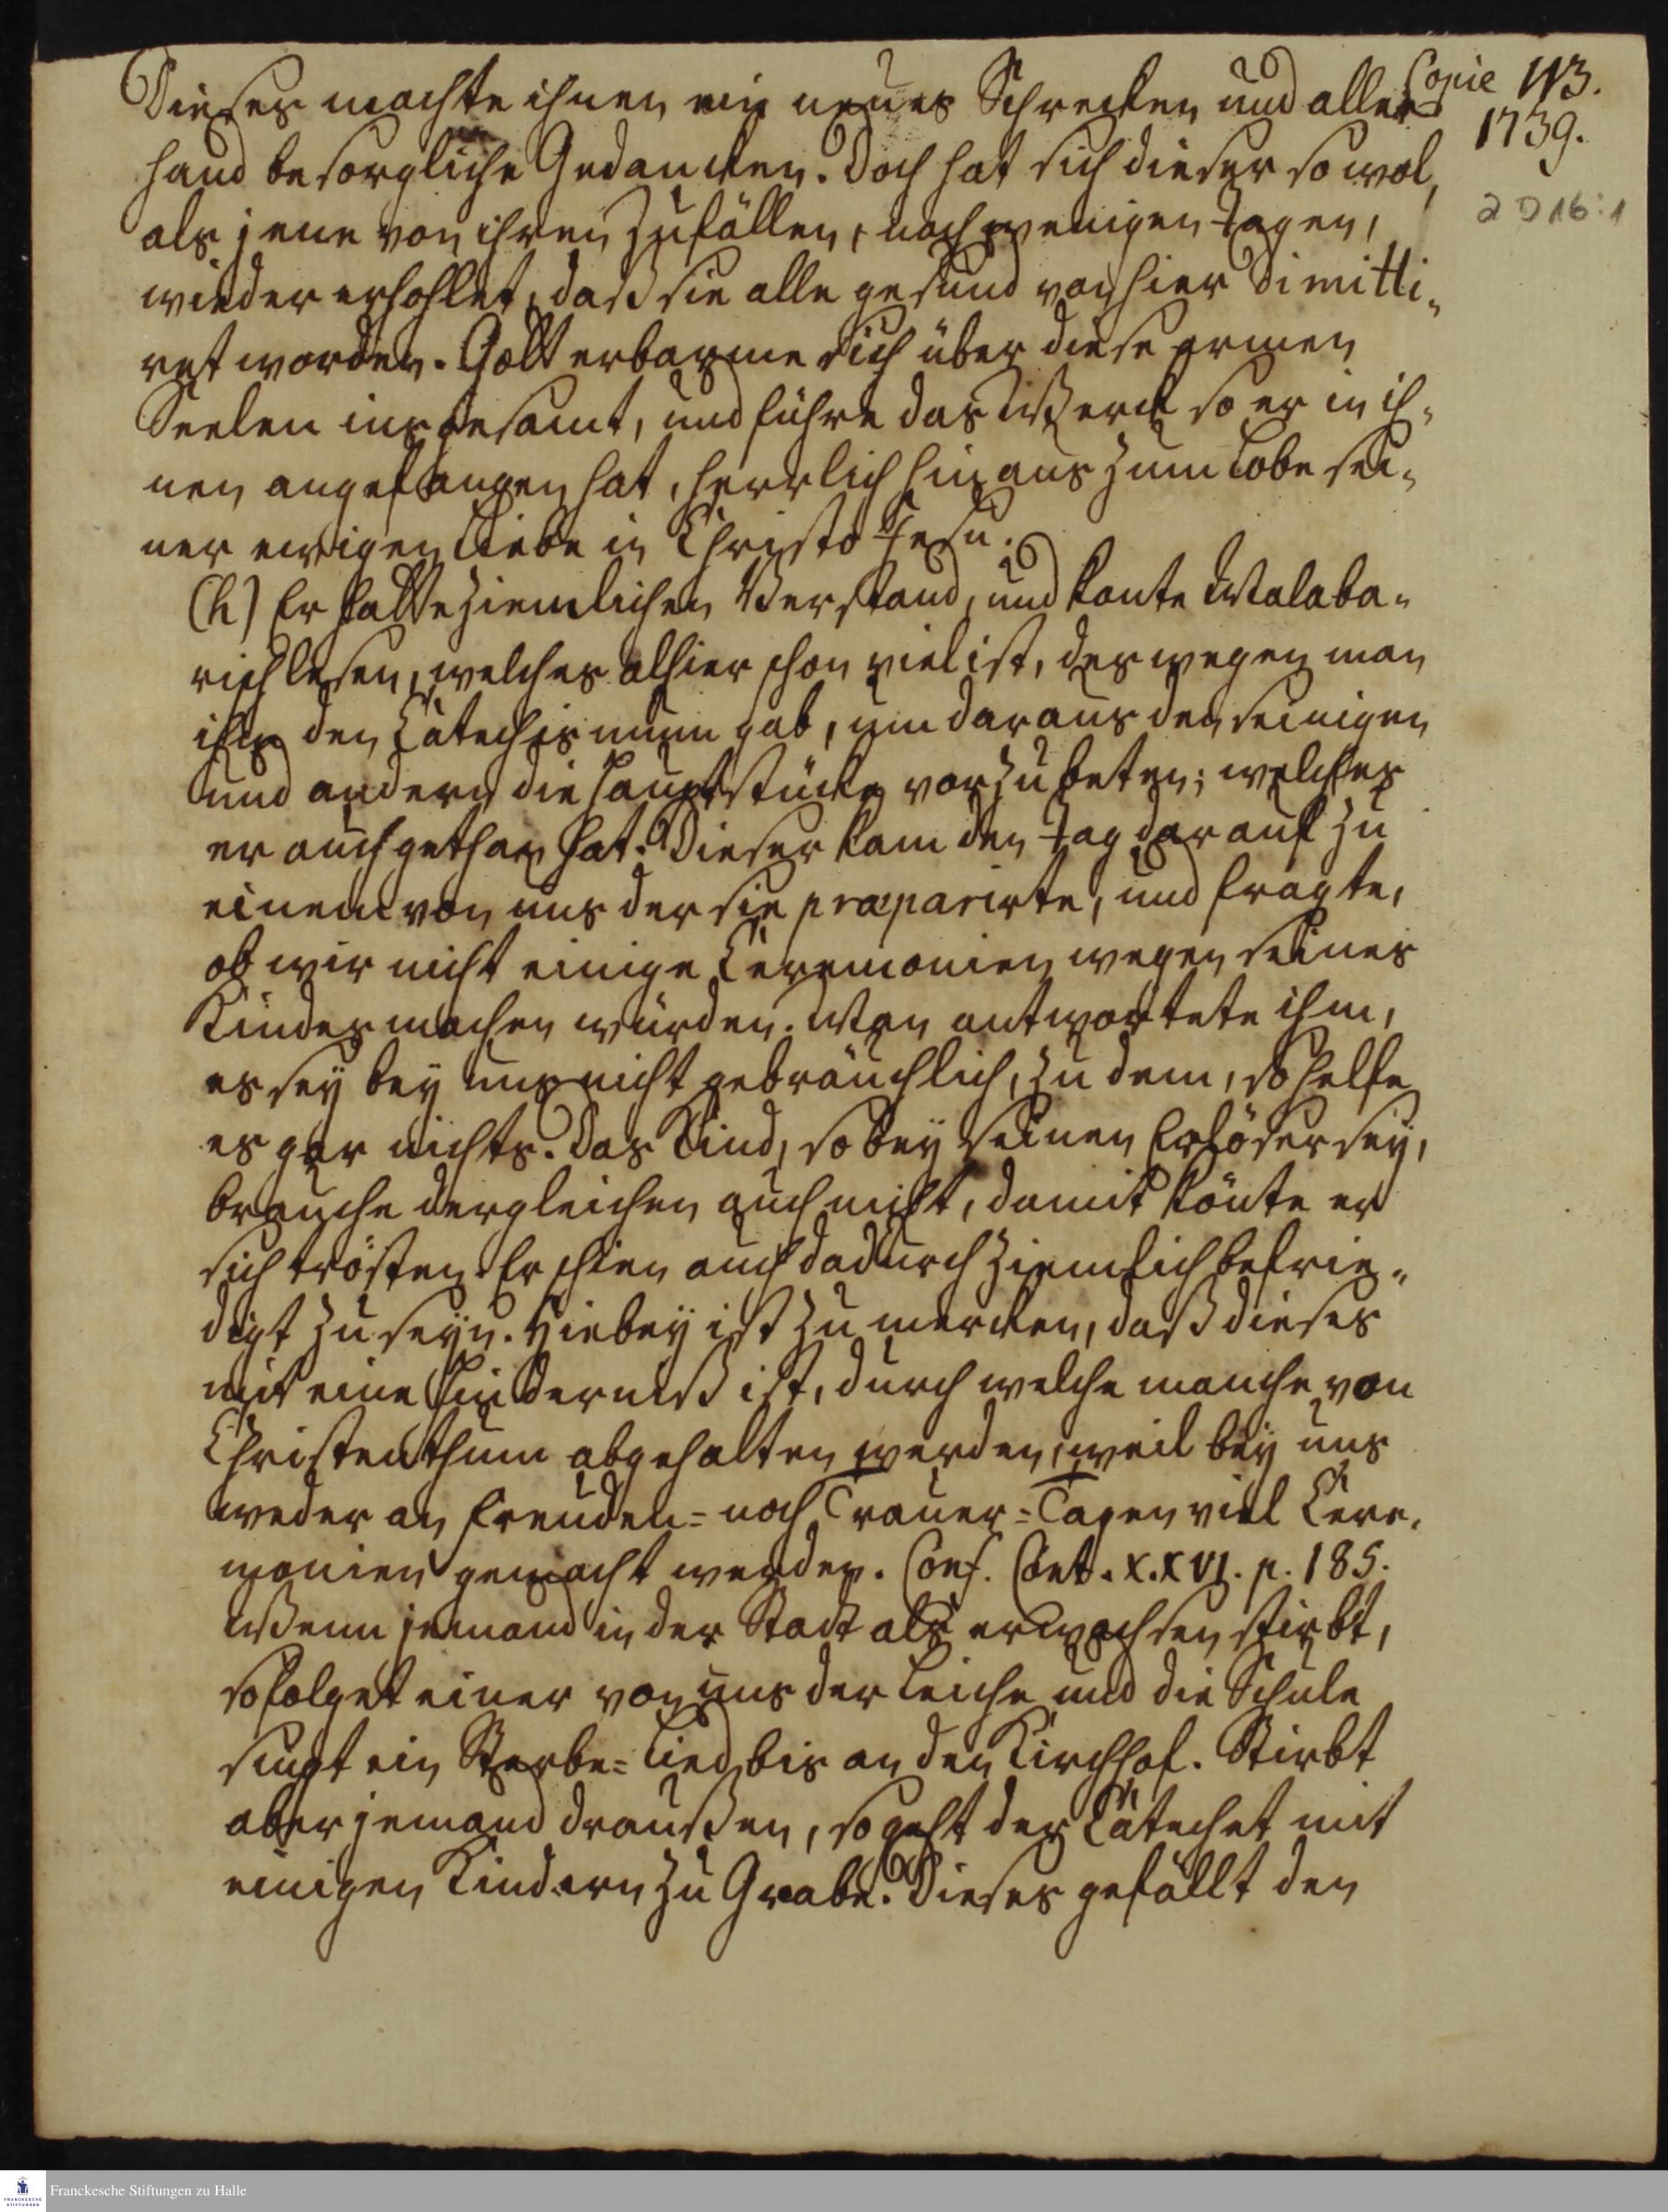 Copie N3.
1739.
2 D 16:1
Dieses machte ihnen ein neues Schrecken und aller
hand besorgliche Gedancken. Doch hat sich dieser so wol,
als jene von ihren Zufällen, nach wenigen Tagen,
wieder erhohlet, daß sie alle gesund von hier dimitti„
ret worden. Gott erbarme sich über diese armen
Seelen insgesamt, und führe das Werck so er in ih„
nen angefangen hat, herrlich hinaus zum Lobe sei„
ner ewigen Liebe in Christo Jesu.
(h) Er hatte ziemlichen Verstand, und konte Malaba„
risch lesen, welches alhier schon viel ist, deswegen man
ihm den Catechismum gab, um daraus den seinigen
und andern die Hauptstücke vorzubeten; welches
er auch gethan hat. Dieser kam den Tag darauf zu
einem von uns der sie præparirte, und fragte,
ob wir nicht einige Ceremonien wegen seines
Kindes machen würden. Man antwortete ihm,
es sey bey uns nicht gebräuchlich, zu dem, so helfe
es gar nichts. Das Kind, so bey seinen Erlöser sey,
brauche dergleichen auch nicht, damit könte er
sich trösten. Er schien auch dadurch ziemlich befrie„
digt zu seyn. Hiebey ist zu mercken, daß dieses
mit eine Hinderniß ist, durch welche manche von
Christenthum abgehalten werden, weil bey uns
weder an Freuden= noch Trauer=Tagen viel Cere„
monien gemacht werden. Conf. Cont. XXVI. p. 185.
Wenn jemand in der Stadt als erwachsen stirbt,
so folget einer von uns der Leiche und die Schule
singt ein Sterbe=Lied bis an den Kirchhof. Stirbt
aber jemand draußen, so geht der Catechet mit
einigen Kindern zu Grabe. Dieses gefällt den
Franckesche Stiftungen zu Halle
FRANCKESCHE
STIFTUNGEN